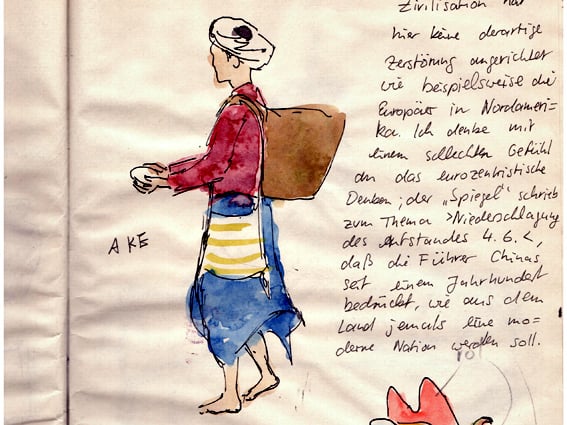 Zivilisation hat
hier keine derartige
Zerstörung angerichtet
wie beispielsweise die
Europäer in Nordameri-
ka. Ich denke mit
einem schlechten Gefühl
an das eurozentristische
Denken; der „Spiegel" schrieb
zum Thema >Niederschlagung
des Aufstandes 4.6.<,
daß die Führer Chinas
seit einem Jahrhundert
bedrückt, wie aus dem
Land jemals eine mo-
derne Nation werden soll.
AKE
rot